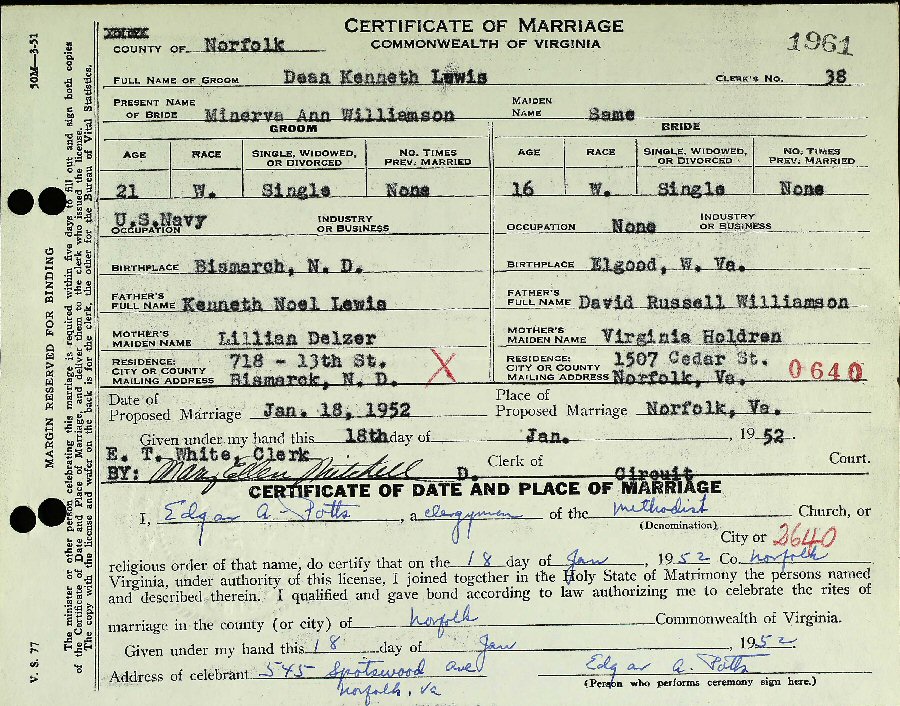 CERTIFICATE OF MARRIAGE
COMMONWEALTH OF VIRGINIA
1961
COUNTY OF Norfolk
FULL NAME OF GROOM Dean Kenneth Lewis CLERK'S NO. 38
PRESENT NAME OF BRIDE Minerva Ann Williamson MAIDEN NAME Same
GROOM BRIDE
AGE RACE SINGLE, WIDOWED, OR DIVORCED NO. TIMES PREV. MARRIED AGE RACE SINGLE, WIDOWED, OR DIVORCED NO. TIMES PREV. MARRIED
21 W. Single None 16 W. Single None
U.S.Navy
OCCUPATION INDUSTRY OR BUSINESS OCCUPATION None INDUSTRY OR BUSINESS
BIRTHPLACE Bismarch, N. D. BIRTHPLACE Elgood, W. Va.
FATHER'S FULL NAME Kenneth Noel Lewis FATHER'S FULL NAME David Russell Williamson
MOTHER'S MAIDEN NAME Lillian Delzer MOTHER'S MAIDEN NAME Virginia Holdren
RESIDENCE: CITY OR COUNTY MAILING ADDRESS 718 - 13th St. Bismarck, N. D. X RESIDENCE: CITY OR COUNTY MAILING ADDRESS 1507 Cedar St. Norfolk, Va. 0640
Date of Proposed Marriage Jan. 18, 1952 Place of Proposed Marriage Norfolk, Va.
Given under my hand this 18th day of Jan. , 1952.
E. T. White, Clerk
BY: Mary Ellen Mitchell D. Clerk of Circuit Court.
CERTIFICATE OF DATE AND PLACE OF MARRIAGE
I, Edgar A. Potts , a clergyman of the Methodist Church, or
(Denomination)
City or 2640
religious order of that name, do certify that on the 18 day of Jan , 1952 Co. Norfolk
Virginia, under authority of this license, I joined together in the Holy State of Matrimony the persons named
and described therein. I qualified and gave bond according to law authorizing me to celebrate the rites of
marriage in the county (or city) of Norfolk Commonwealth of Virginia.
Given under my hand this 18 day of Jan , 1952
Address of celebrant 545 Spotswood Ave Edgar A. Potts
Norfolk, Va (Person who performs ceremony sign here.)
50M—3-51
MARGIN RESERVED FOR BINDING
V. S. 77
The minister or other person celebrating this marriage is required within five days to fill out and sign both copies
of the Certificate of Date and Place of Marriage, and deliver them to the clerk who issued the license.
The copy with the license and wafer on the back is for the clerk, the other for the Bureau of Vital Statistics.